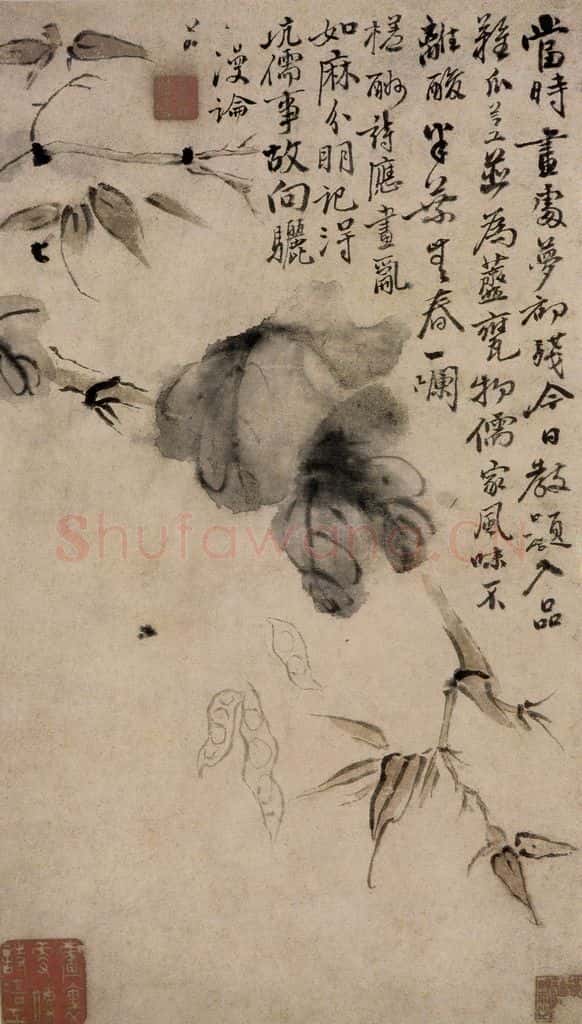 當時畫處夢初殘今日教題入品
難瓜茎並為虀甕物儒家風味不
離酸半葉生春一嚼
槎酬詩應畫亂
如麻分明記得
坑儒事故向驪
漫論
Shufawang.CN